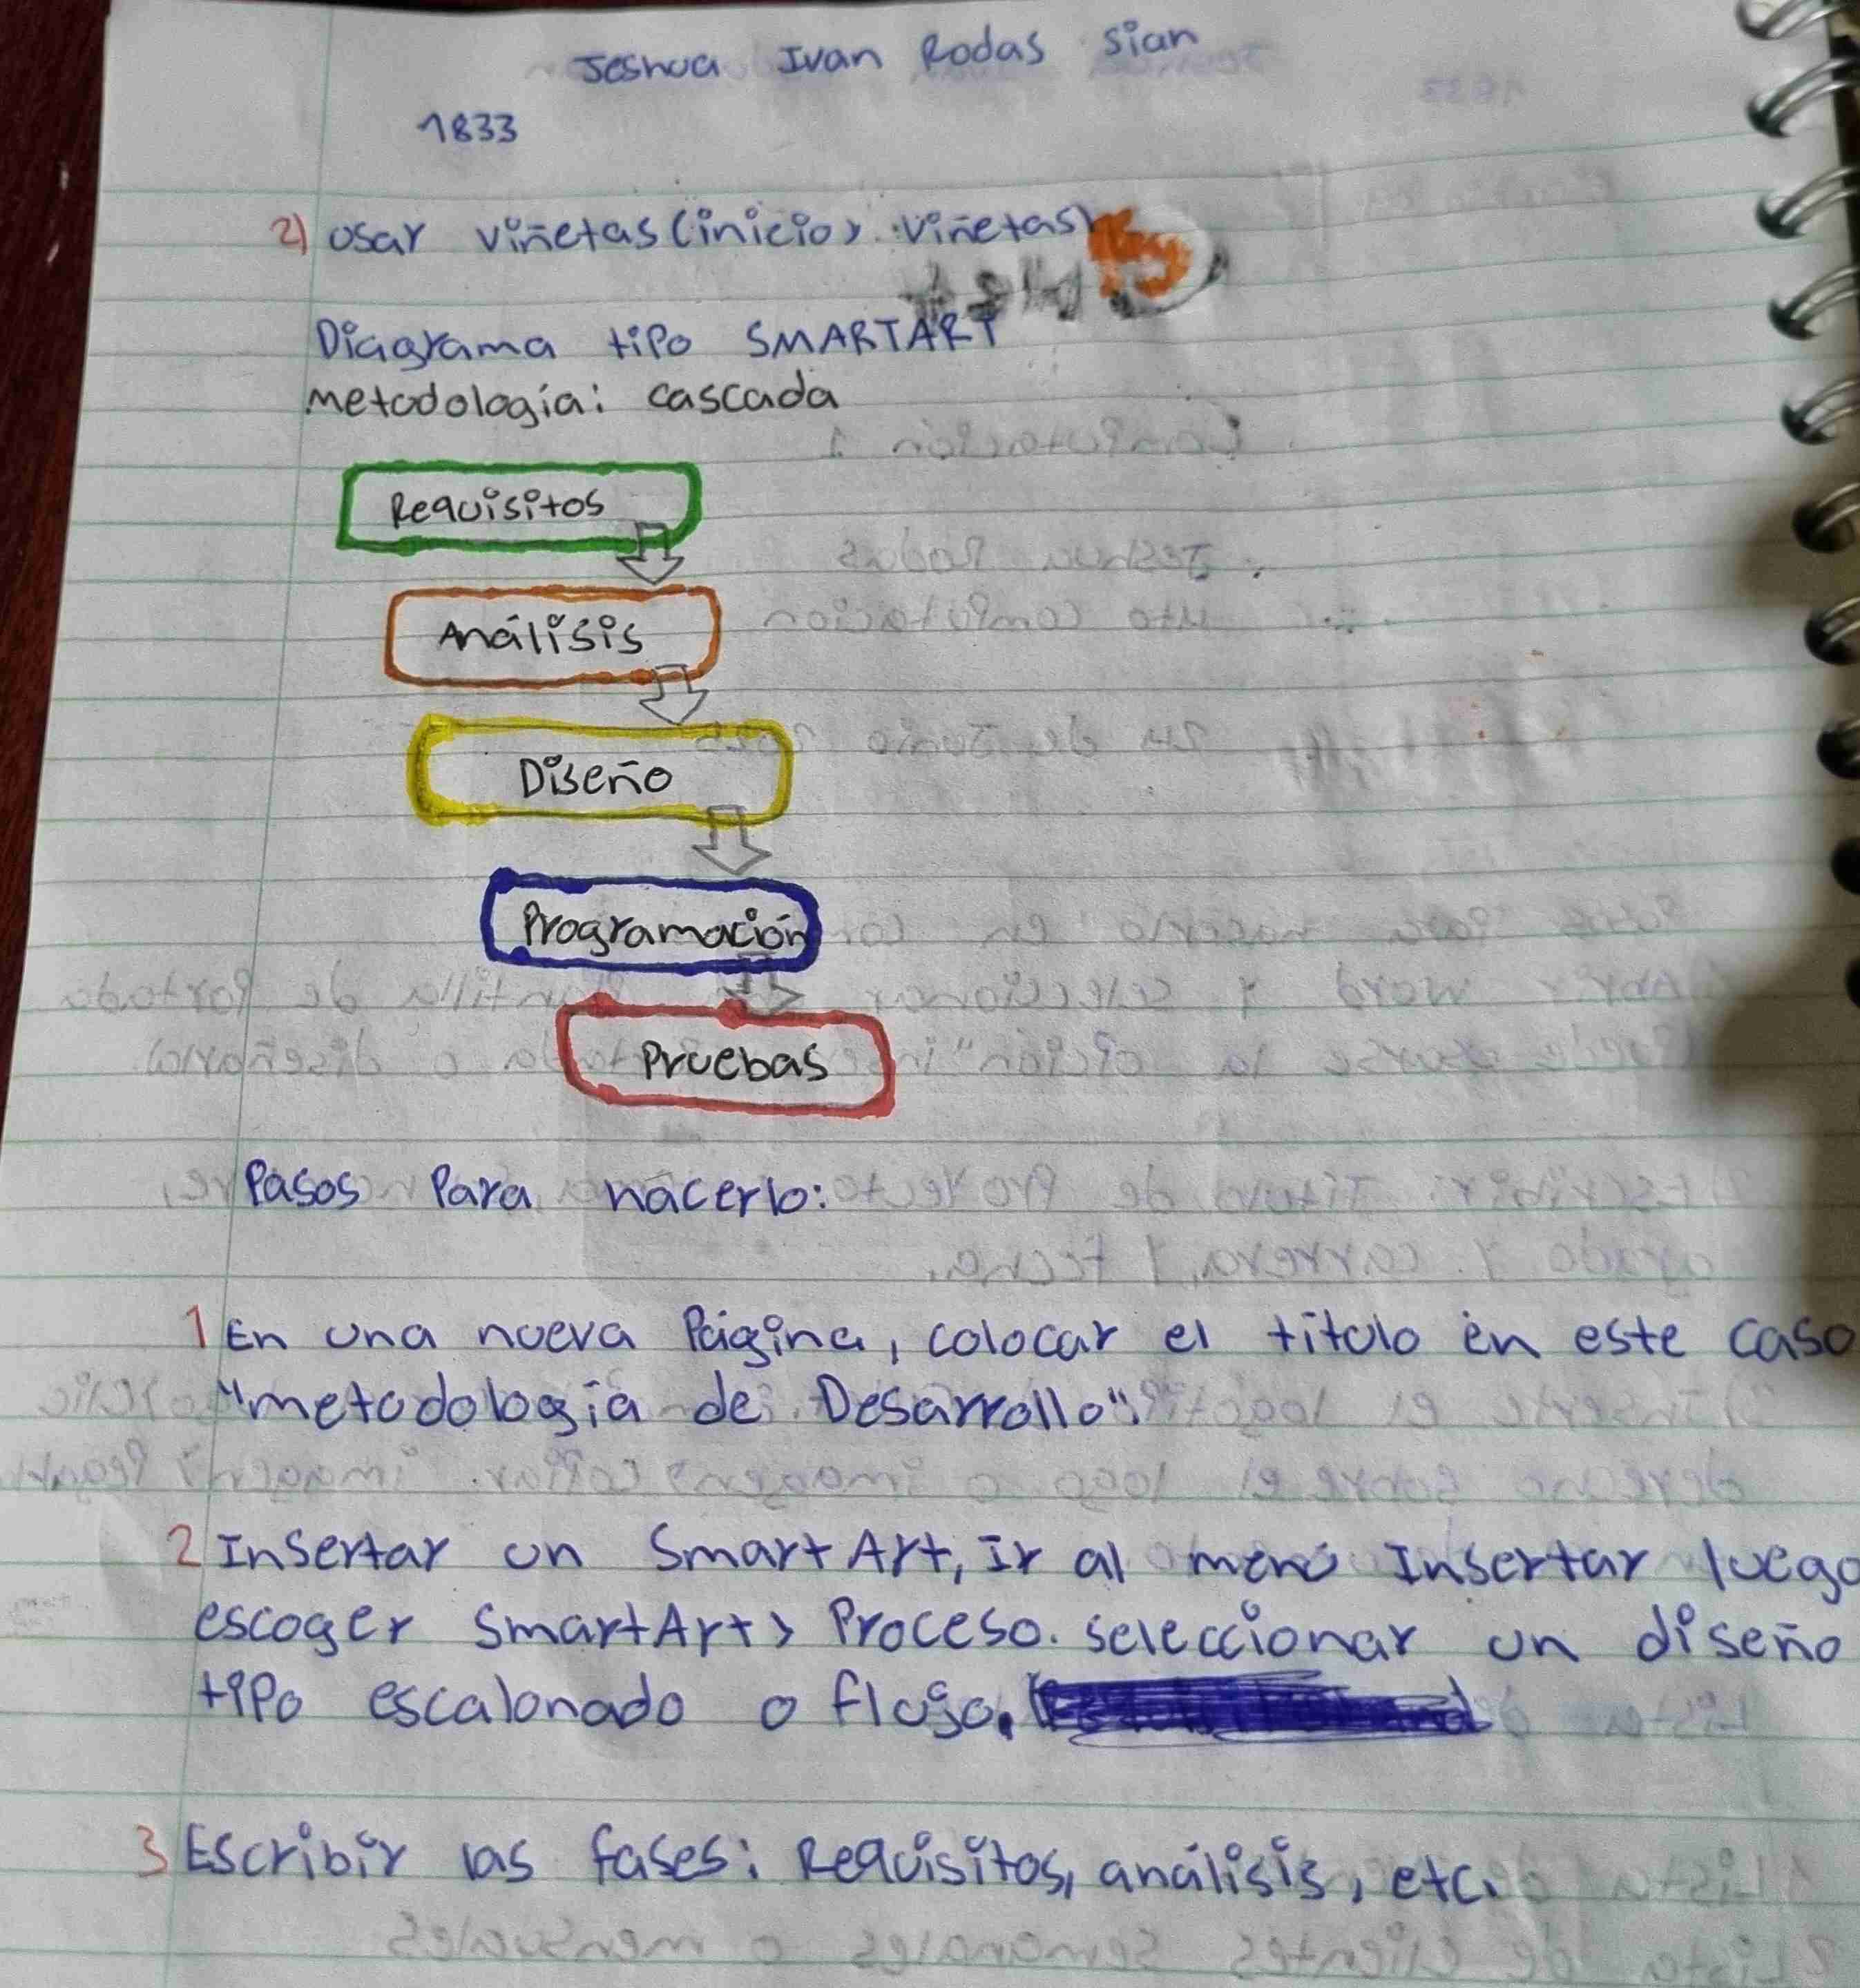 Jeshua Ivan Rodas Sian
1833
2) Usar viñetas (inicio > viñetas)
Diagrama tipo SMARTART
metodología: cascada
Requisitos
Análisis
Diseño
Programación
Pruebas
Pasos Para hacerlo:
1 En una nueva Página, colocar el titulo en este caso
"metodología de Desarrollo".
2 Insertar un SmartArt, Ir al menú Insertar luego
escoger SmartArt > Proceso. seleccionar un diseño
tipo escalonado o flujo.
3 Escribir las fases: Requisitos, análisis, etc.